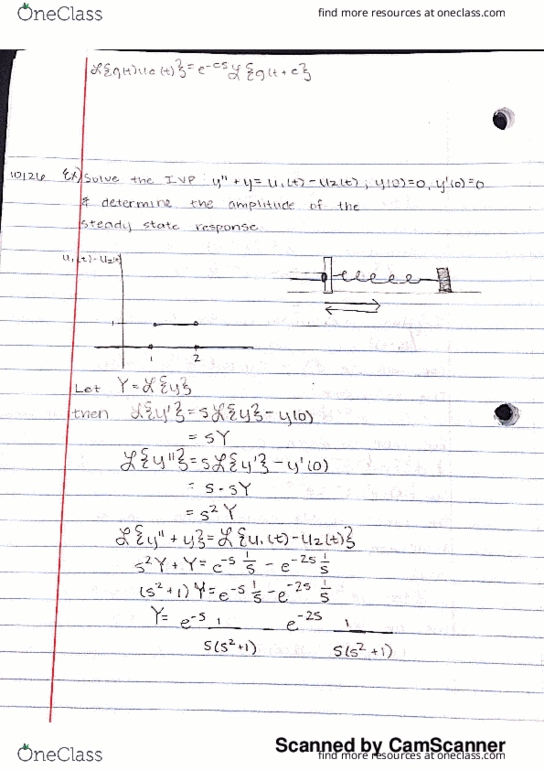 OneClass
find more resources at oneclass.com
ℒ{g(t)uc(t)} = e^-cs ℒ{g(t+c)}
10/26 Ex) Solve the IVP y" + y = u₁(t) - u₂(t); y(0)=0, y'(0)=0
& determine the amplitude of the
steady state response
u₁(t) - u₂(t)
1
1 2
Let Y = ℒ{y}
then ℒ{y'} = sℒ{y} - y(0)
= sY
ℒ{y"} = sℒ{y'} - y'(0)
= s · sY
= s² Y
ℒ{y" + y} = ℒ{u₁(t) - u₂(t)}
s²Y + Y = e^-s 1/s - e^-2s 1/s
(s²+1) Y = e^-s 1/s - e^-2s 1/s
Y = e^-s 1/s(s²+1) - e^-2s 1/s(s²+1)
Scanned by CamScanner
OneClass
find more resources at oneclass.com